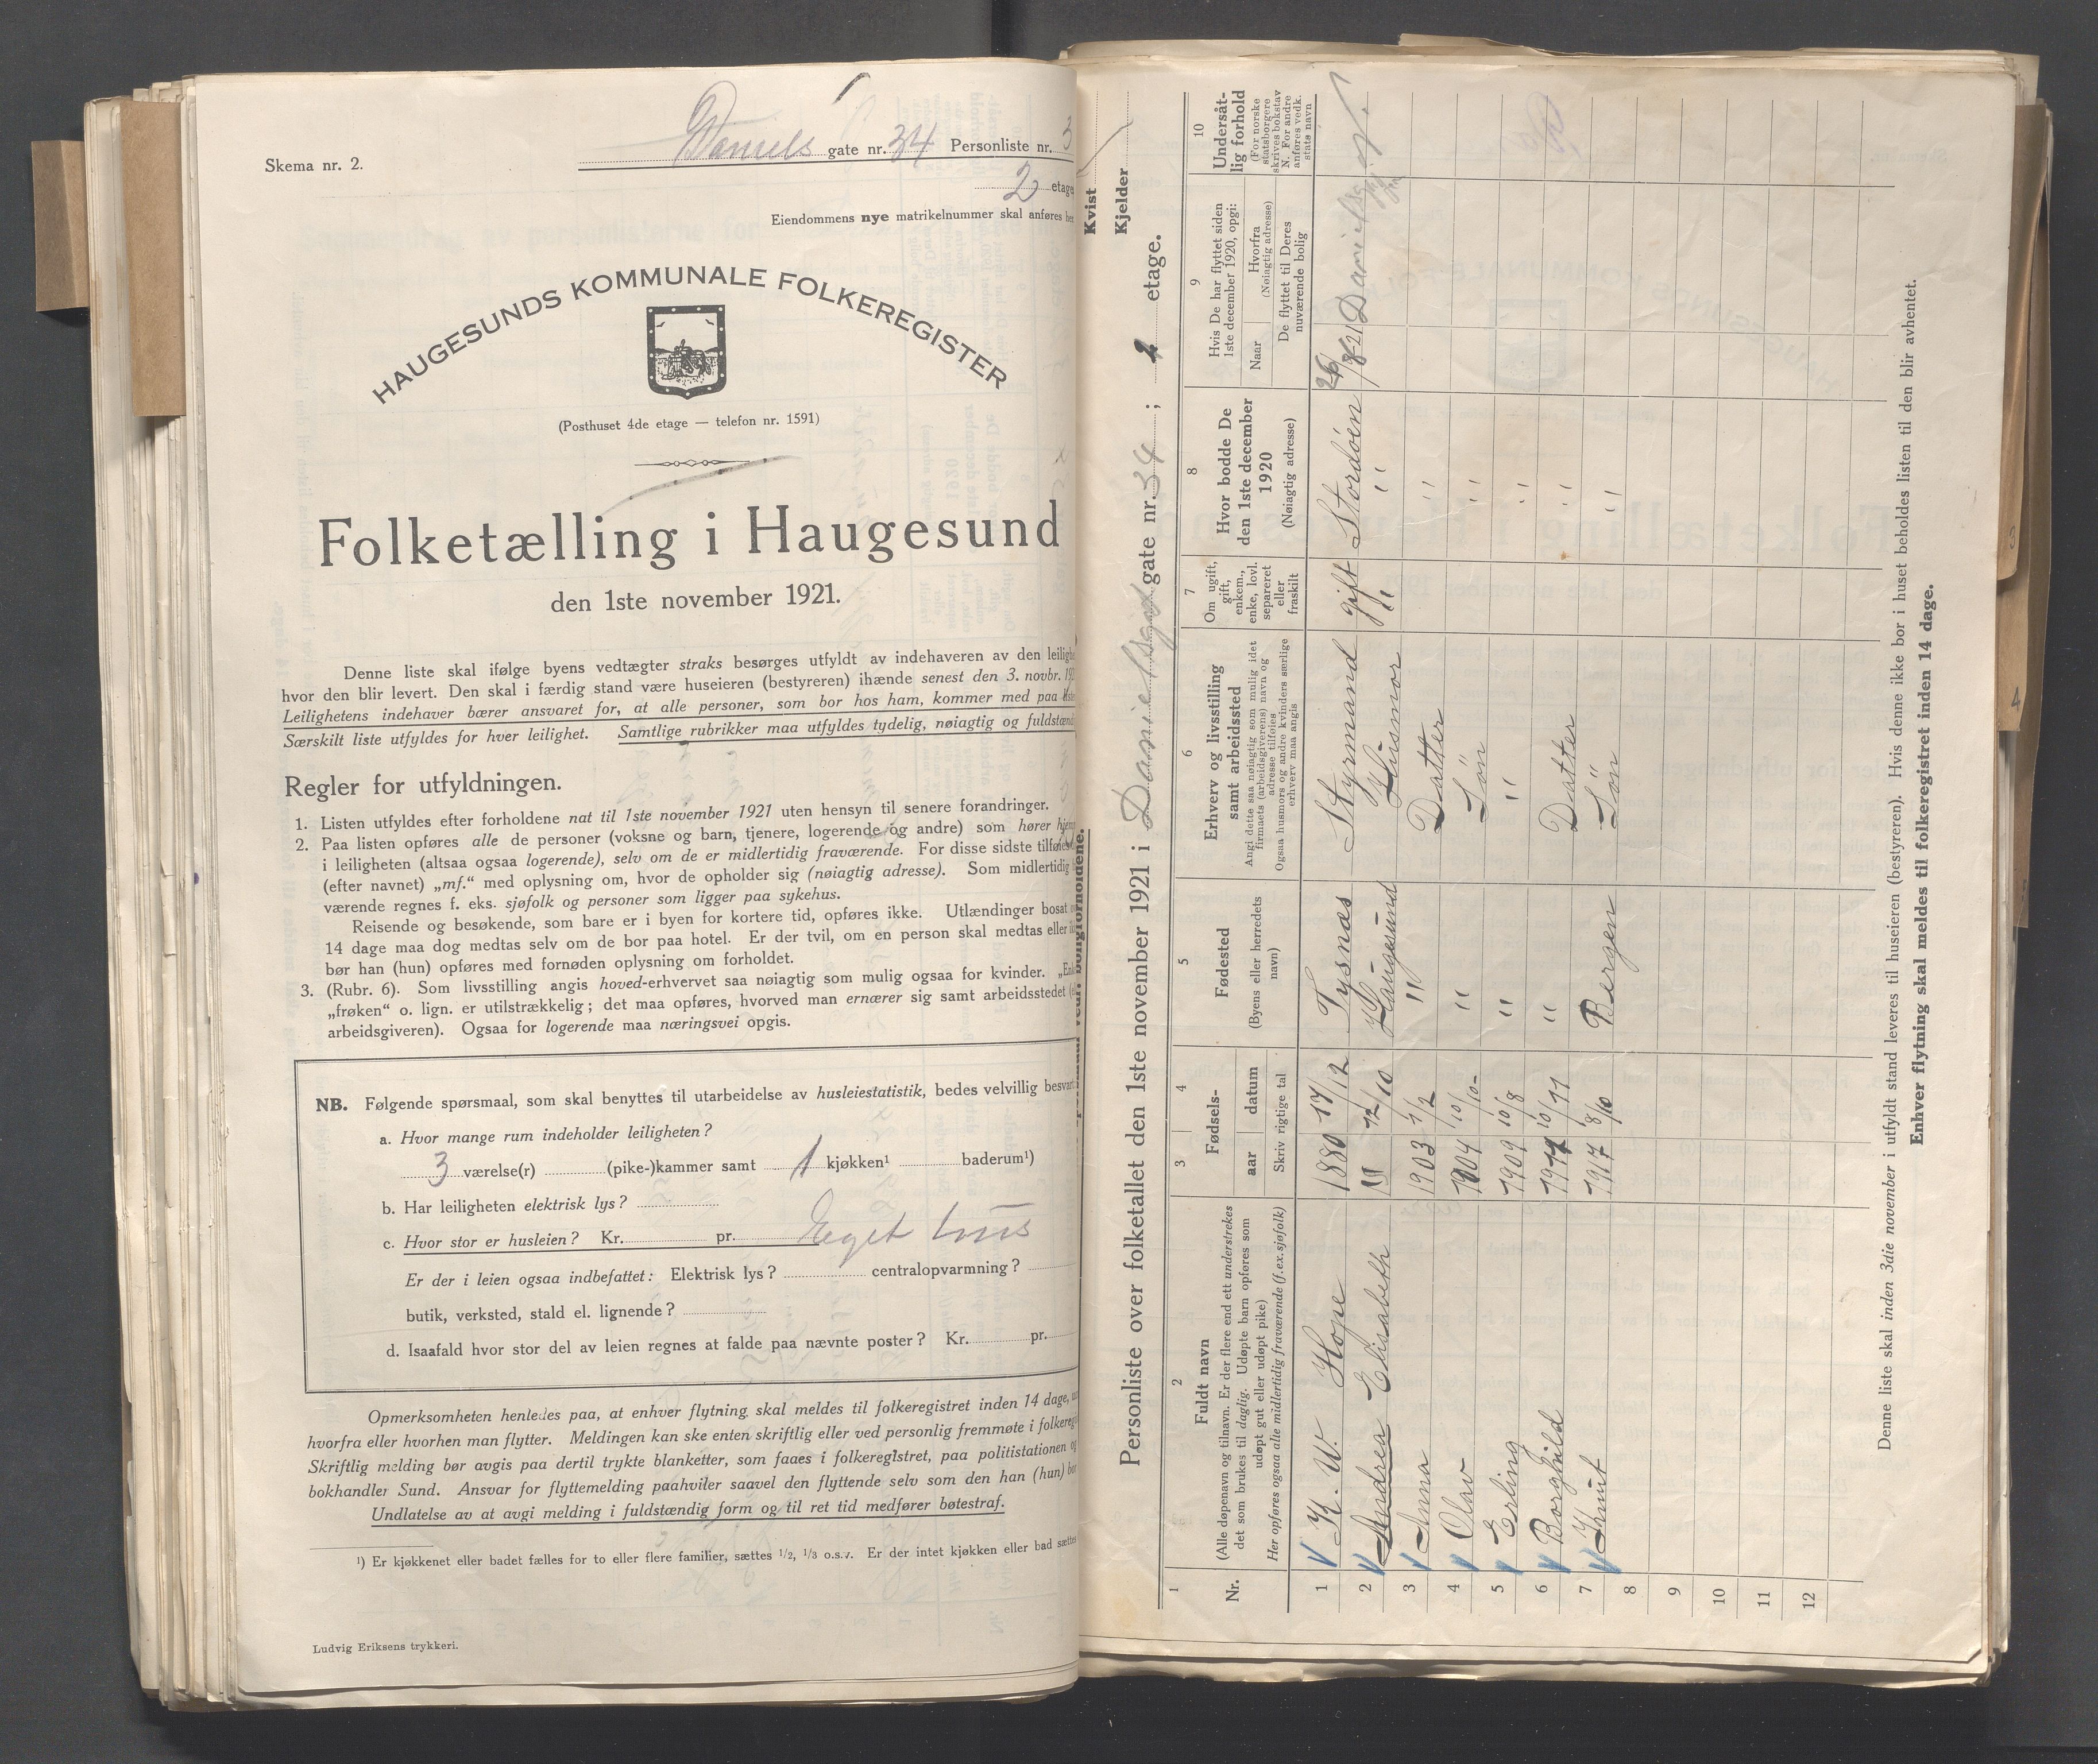 Skema nr. 2.
Daniels gate nr. 34 Personliste nr. 3
2 etage
Eiendommens nye matrikelnummer skal anføres her
HAUGESUNDS KOMMUNALE FOLKEREGISTER
(Posthuset 4de etage — telefon nr. 1591)
Folketælling i Haugesund
den 1ste november 1921.
Denne liste skal ifølge byens vedtægter straks besørges utfyldt av indehaveren av den leilighe
hvor den blir levert. Den skal i færdig stand være huseieren (bestyreren) ihænde senest den 3. novbr. 192
Leilighetens indehaver bærer ansvaret for, at alle personer, som bor hos ham, kommer med paa liste
Særskilt liste utfyldes for hver leilighet. Samtlige rubrikker maa utfyldes tydelig, nøiagtig og fuldstænd
Regler for utfyldningen.
1. Listen utfyldes efter forholdene nat til 1ste november 1921 uten hensyn til senere forandringer.
2. Paa listen opføres alle de personer (voksne og barn, tjenere, logerende og andre) som hører hjem
i leiligheten (altsaa ogsaa logerende), selv om de er midlertidig fraværende. For disse sidste tilføies
(efter navnet) „mf.“ med oplysning om, hvor de opholder sig (nøiagtig adresse). Som midlertidig
værende regnes f. eks. sjøfolk og personer som ligger paa sykehus.
Reisende og besøkende, som bare er i byen for kortere tid, opføres ikke. Utlændinger bosat
14 dage maa dog medtas selv om de bor paa hotel. Er der tvil, om en person skal medtas eller
bør han (hun) opføres med fornøden oplysning om forholdet.
3. (Rubr. 6). Som livsstilling angis hoved-erhvervet saa nøiagtig som mulig ogsaa for kvinder. „Enk
„frøken“ o. lign. er utilstrækkelig; det maa opføres, hvorved man ernærer sig samt arbeidsstedet (
arbeidsgiveren). Ogsaa for logerende maa næringsvei opgis.
NB. Følgende spørsmaal, som skal benyttes til utarbeidelse av husleiestatistik, bedes velvillig besvart
a. Hvor mange rum indeholder leiligheten?
3 værelse(r) (pike-)kammer samt 1 kjøkken¹ baderum¹)
b. Har leiligheten elektrisk lys?
c. Hvor stor er husleien? Kr. pr. Eget hus
Er der i leien ogsaa indbefattet: Elektrisk lys? centralopvarmning?
butik, verksted, stald el. lignende?
d. Isaafald hvor stor del av leien regnes at falde paa nævnte poster? Kr. pr.
Opmerksomheten henledes paa, at enhver flytning skal meldes til folkeregistret inden 14 dage,
hvorfra eller hvorhen man flytter. Meldingen kan ske enten skriftlig eller ved personlig fremmøte i folkereg
Skriftlig melding bør avgis paa dertil trykte blanketter, som faaes i folkeregistret, paa politistationen og
bokhandler Sund. Ansvar for flyttemelding paahviler saavel den flyttende selv som den han (hun) bor
Undlatelse av at avgi melding i fuldstændig form og til ret tid medfører bøtestraf.
¹) Er kjøkkenet eller badet fælles for to eller flere familier, sættes 1/2, 1/3 o.s.v. Er der intet kjøkken eller bad sættes
Ludvig Eriksens trykkeri.
Kvist
Kjelder
Personliste over folketallet den 1ste november 1921 i Danielsgt gate nr. 34 ; etage.
1 2 3 4 5 6 7 8 9 10
Nr.
Fuldt navn
(Alle døpenavn og tilnavn. Er der flere end ett understrekes
det som brukes til daglig. Udøpte barn opføres som
udøpt gut eller udøpt pike)
Her opføres ogsaa alle midlertidig fraværende (f.ex. sjøfolk)
Fødsels-
aar datum
Skriv rigtige tal
Fødested
(Byens eller herredets
navn)
Erhverv og livsstilling
samt arbeidssted
Angi dette saa nøiagtig som mulig idet
firmaets (arbeidsgiverens) navn og
adresse tilføies
Ogsaa husmors og andre kvinders særlige
erhverv maa angis
Om ugift,
gift,
enkem.,
enke, lovl.
separeret
eller
fraskilt
Hvor bodde De
den 1ste december
1920
(Nøiagtig adresse)
Hvis De har flyttet siden
1ste december 1920, opgi:
Naar
Hvorfra
(Nøiagtig adresse)
De flyttet til Deres
nuværende bolig
Undersåt-
lig forhold
(For norske
statsborgere
skrives bokstav
N. For andre
anføres vedk.
stats navn
1 K. W. Hope 1880 17/12 Tysnæs Styrmand gift Stordøen 26/8 21 Danielsgt N.
2 Andrea Elisabeth 12/10 Haugesund Husmor " "
3 Anna 1903 1/2 " Datter "
4 Olav 1904 10/10 " Søn "
5 Erling 1909 10/8 " " "
6 Borghild 10/11 " Datter "
7 Knut 1917 8/10 Bergen Søn "
8
9
10
11
12
Denne liste skal inden 3die november i utfyldt stand leveres til huseieren (bestyreren). Hvis denne ikke bor i huset beholdes listen til den blir avhentet.
Enhver flytning skal meldes til folkeregistret inden 14 dage.